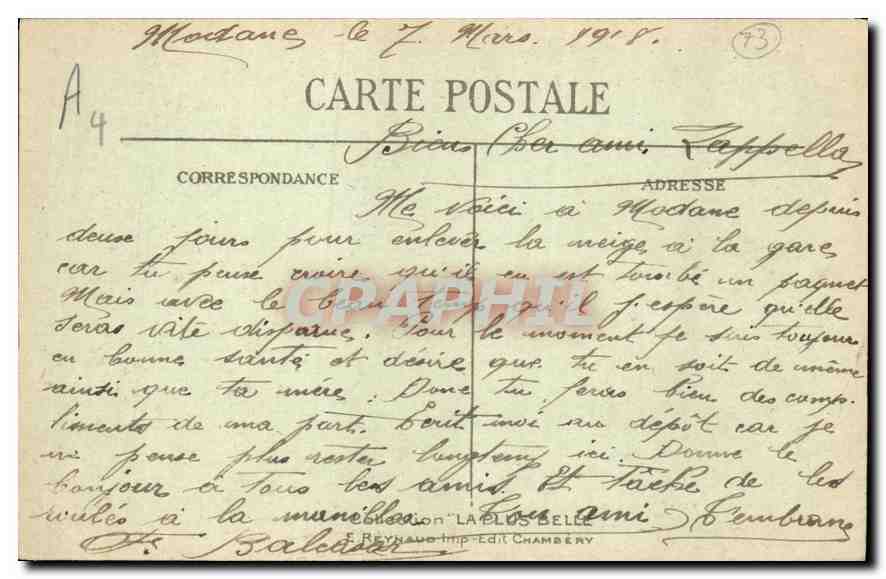 Modane le 7 Mars 1918.
73
A
4
CARTE POSTALE
Bien Cher ami Zappella
CORRESPONDANCE
ADRESSE
Me voici à Modane depuis
deux jours pour enlever la neige à la gare
car tu peux croire qu'il en est tombé un paquet
Mais avec le beau temps qu'il j'espère qu'elle
seras vite disparue. Pour le moment je suis toujours
en bonne santé et désire que tu en soit de même
ainsi que ta mère. Donc tu feras bien des comp-
liments de ma part. Ecrit moi au dépôt car je
ne pense plus rester longtemps ici. Donne le
bonjour à tous les amis. Et tâche de les
roulés à la manille. Ton ami
Collection "LA PLUS BELLE"
E. REYNAUD Imp-Edit CHAMBÉRY
CPAPHIL